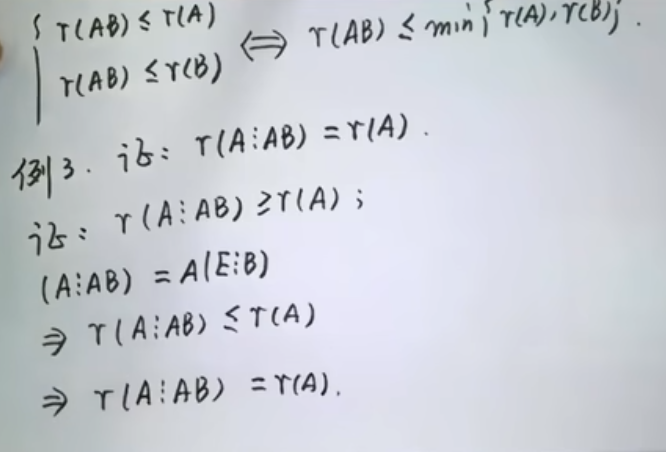 { r(AB) ≤ r(A)
r(AB) ≤ r(B) ⟺ r(AB) ≤ min{r(A), r(B)}.
例3. 证: r(A⋮AB) = r(A).
证: r(A⋮AB) ≥ r(A);
(A⋮AB) = A(E⋮B)
⇒ r(A⋮AB) ≤ r(A)
⇒ r(A⋮AB) = r(A).